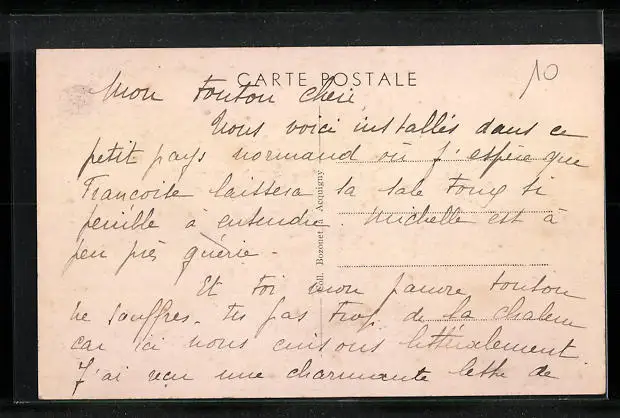 CARTE POSTALE
10
Mon tonton chéri,
Nous voici installés dans ce
petit pays normand où j'espère que
Françoise laissera sa sale toux si
pénible à entendre. Michelle est à
peu près guérie -
Et toi mon pauvre tonton
ne souffres-tu pas trop de la chaleur
car ici nous cuisons littéralement.
J'ai reçu une charmante lettre de
Coll. Bozonet à Acquigny